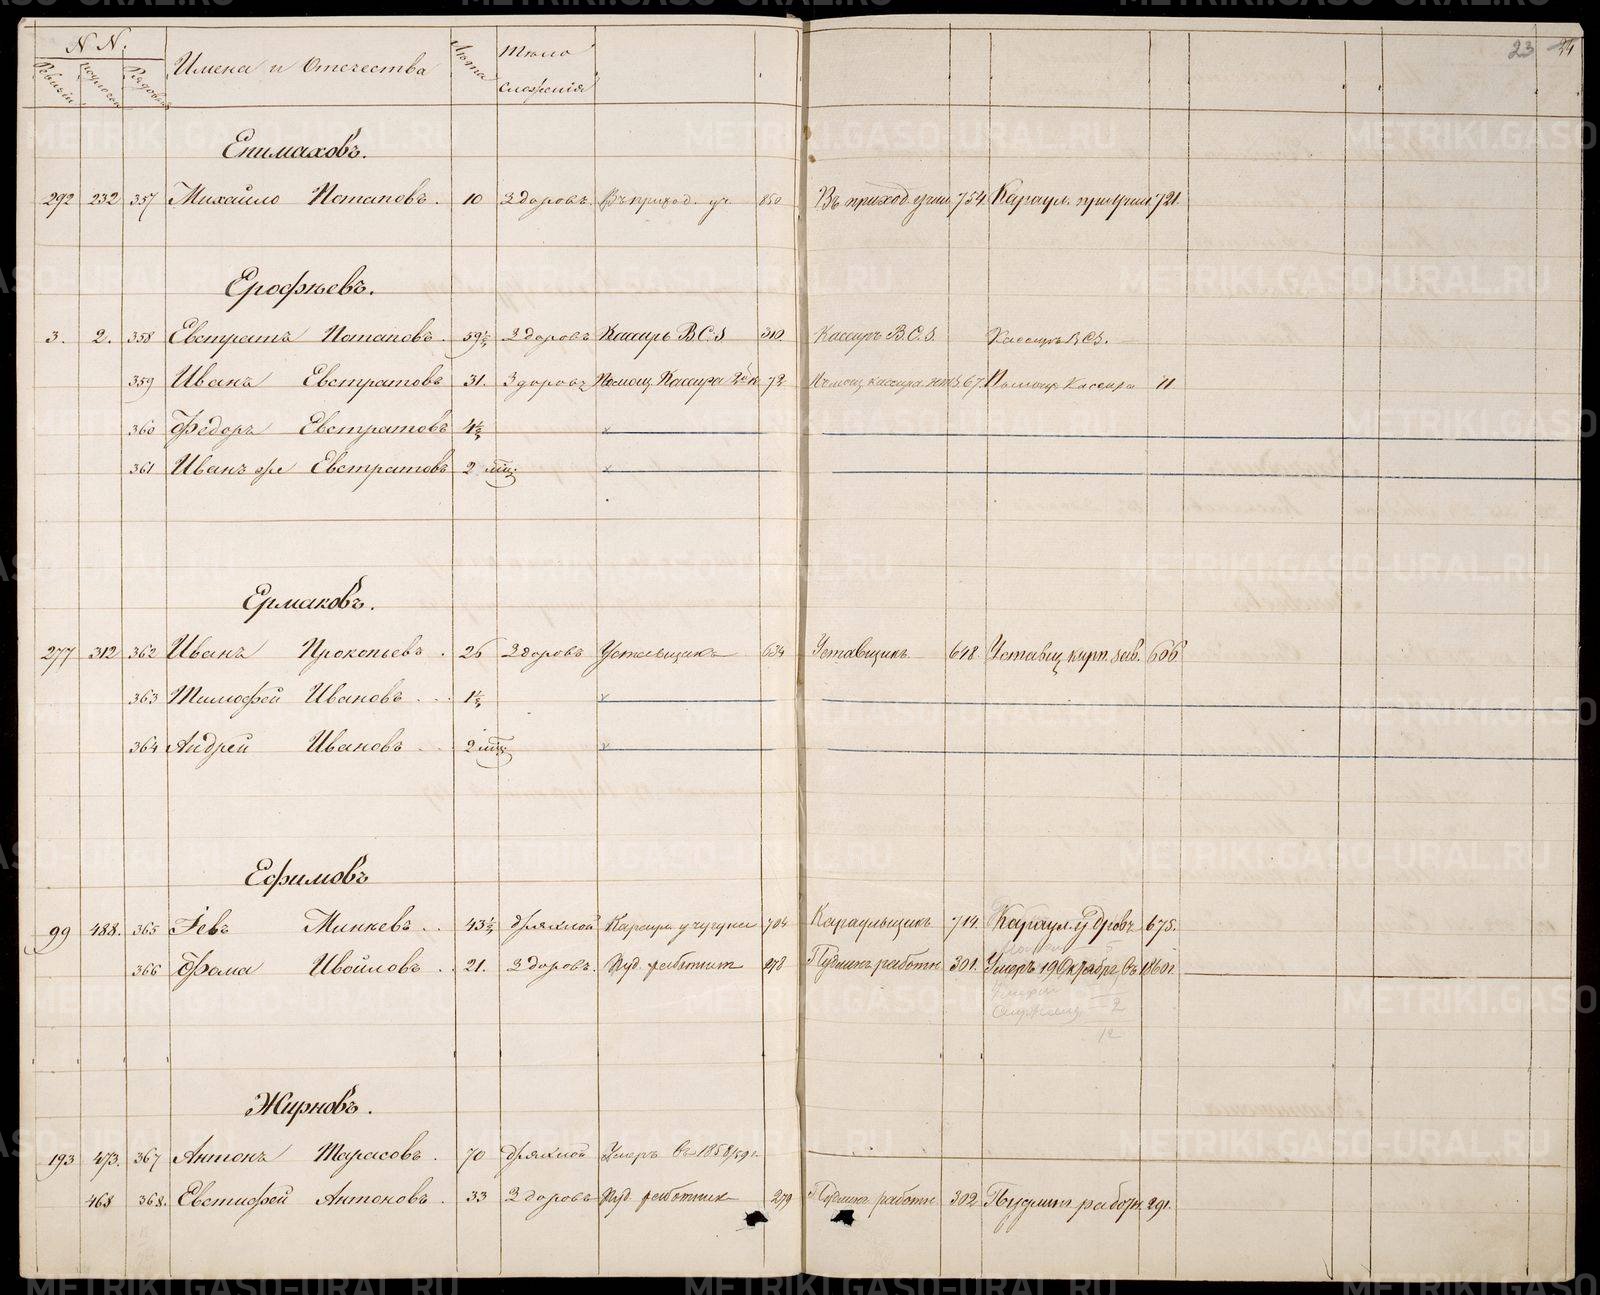 N N.
Ревизіи
Рядовые
Имена и Отечества
Лѣта
Тѣло
сложенія
23 24
Епимаховъ.
292 232 357 Михайло Потаповъ. 10 Здоровъ. Въ приход. уч. 850 Въ приход. учил 754 Караул. при учил. 721.
Ерофѣевъ.
3. 2. 358 Евстратъ Потаповъ. 59½ Здоровъ Кассиръ В.С.I. 310 Кассиръ В.С.I. Кассиръ В.С.I.
359 Иванъ Евстратовъ 31. Здоровъ Помощ. Кассира 72 Помощ. кассира 67. Помощ. Кассира 11
360 Федоръ Евстратовъ 4½ x
361 Иванъ же Евстратовъ 2 мѣс. x
Ермаковъ.
277 312 362 Иванъ Прокопьевъ. 26 Здоровъ Уставщикъ 634 Уставщикъ 648 Уставщ. кирп. зав. 606
363 Тимофей Ивановъ 1½ x
364 Андрей Ивановъ 2 мѣс. x
Ефимовъ
99 488. 365 Левъ Минеевъ 43½ Дряхлой Караул. у чугуна 704 Караульщикъ 714. Караул. у дровъ 675.
366 Фома Ивойловъ 21. Здоровъ. Пуд. работник 278 Пудлинг. работн 301. Умеръ 19 Октября 1860 г.
2
12
Жирновъ.
193 473. 367 Антонъ Тарасовъ. 70 Дряхлой Умеръ въ 1858/59 г.
468 368. Евстифей Антоновъ. 33 Здоровъ Пуд. работник 279 Пудлинг. работн 302 Пудлинг. работн. 291.
METRIKI.GASO-URAL.RU